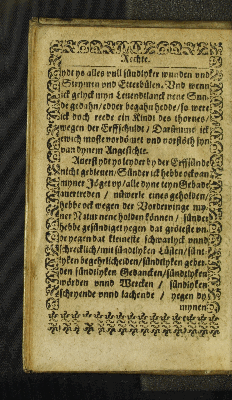 Rechte.
lydt ys alles vull sündtlyker wunden vnd
Striemen vnd Etterbülen. Vnd wenn
ick gelyck myn Leuendtlanck nene Sün-
de gedahn/edder begahn hedde/so were
ick doch rede ein Kindt des thornes/
wegen der Erffschuldt/Darümme ick
ewich moste vordömet vnd vorstöth syn
van dynem Angesichte.
Auerst ydt ys leyder by der Erffsünde
nicht gebleuen. Sünder ick hebbe ock van
myner Jöget vp/alle dyne teyn Gebade
auertreden / nüwerle eines geholden/
hebbe ock wegen der Vordervinge my-
ner Natur nene holden können / sünder
hebbe gesündiget yegen dat gröteste vn-
de yegen dat kleineste schwarlyck vnnd
schrecklich/mit sündtlyken Lüsten/sünt-
lyken begehrlicheiden/sündtlyken geber-
den sündtlyken Gedancken/sündtlyken
wörden vnnd Wercken / sündtlyken
schryende vnnd lachende / yegen dy
mynen